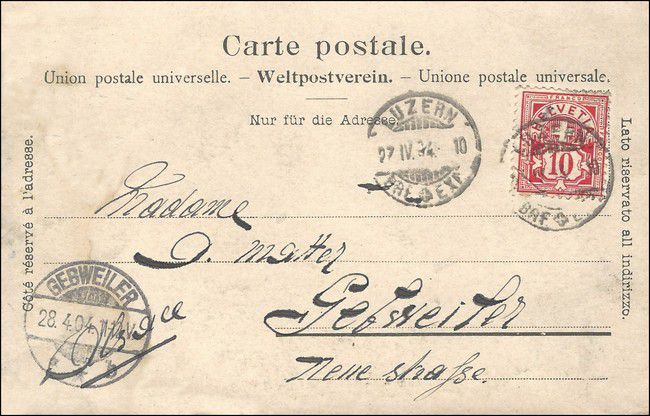 Carte postale.
Union postale universelle. – Weltpostverein. – Unione postale universale.
Nur für die Adresse.
Côté réservé à l'adresse.
Lato riservato all indirizzo.
LUZERN
27.IV.04. 10
BRF. EXP.
FRANCO
HELVETIA
10
LUZERN
10
BRF. EX
Madame
D. Matter
Gebweiler
Neue strasse.
Elsace
GEBWEILER
28.4.04. 11-12V.
b